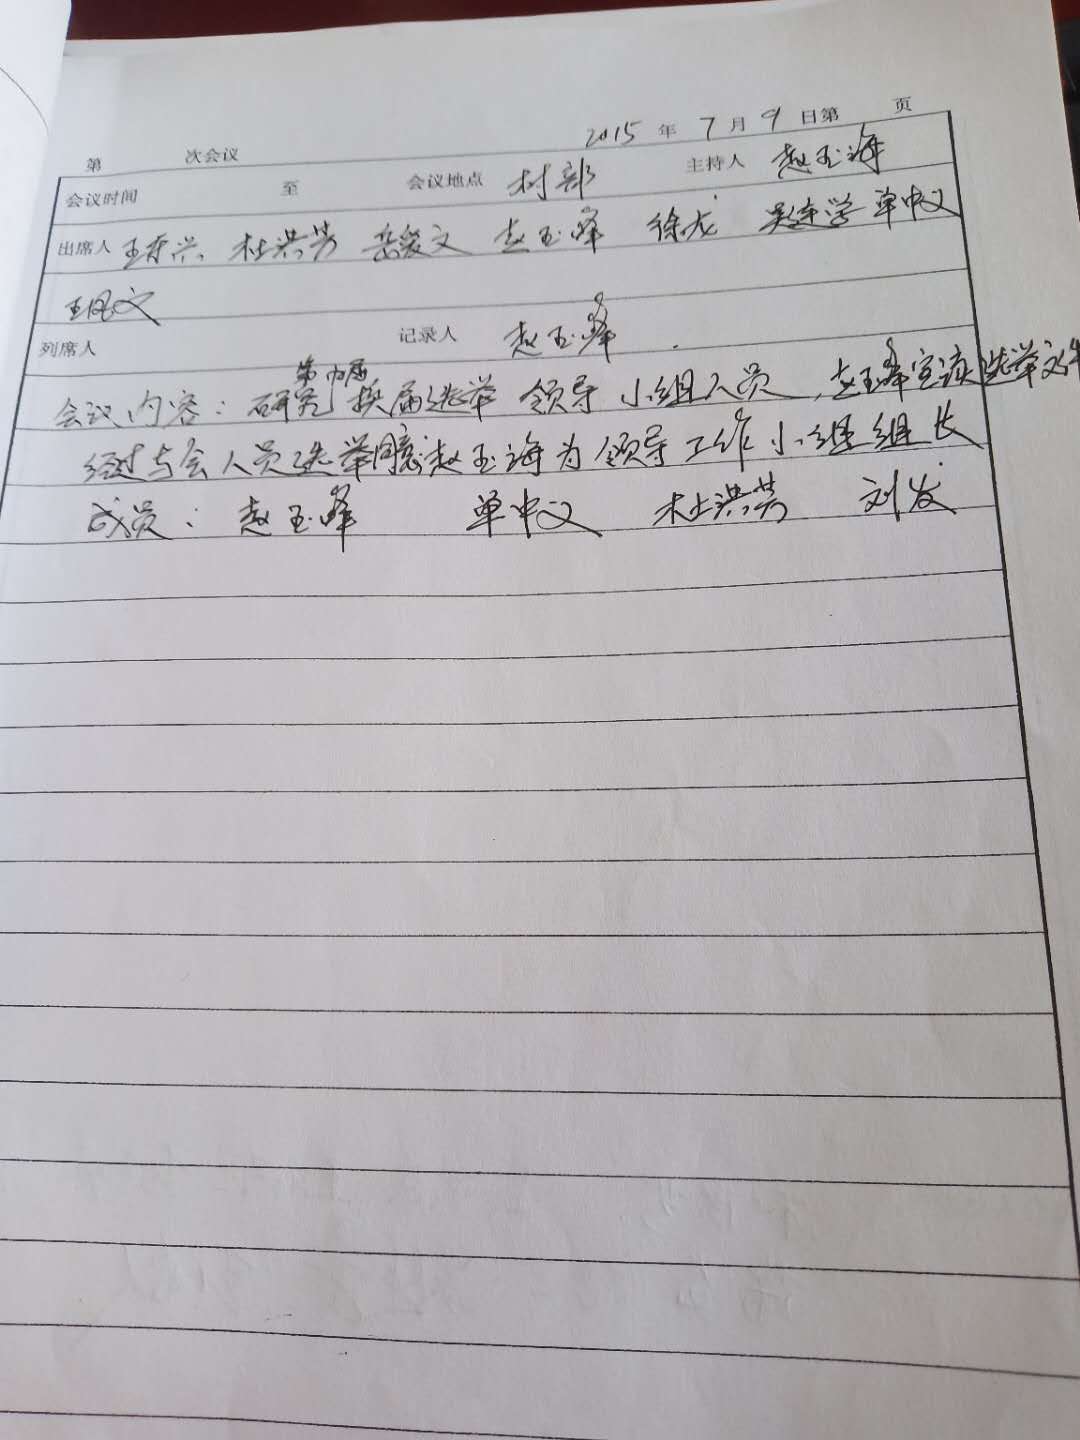 2015年7月9日第 页
第 次会议
会议时间 至 会议地点 村部 主持人 赵玉海
出席人 王存兴 杜洪芳 岳发文 赵玉峰 徐龙 学 单中义
王凤文
列席人 记录人 赵玉峰
第 届
会议内容：研究换届选举领导小组人员，赵玉峰宣读选举文件
经过与会人员选举同意赵玉海为领导工作小组组长
成员：赵玉峰 单中义 杜洪芳 刘发